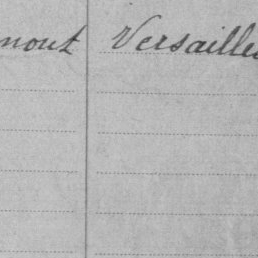 mont Versailles